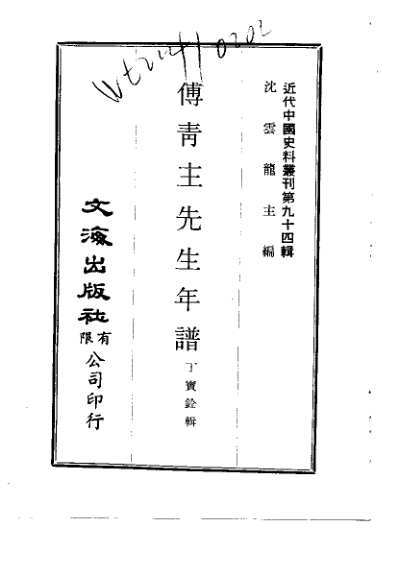 近代中國史料叢刊第九十四輯
沈雲龍主編
傅青主先生年譜
丁寶銓輯
文海出版社有限公司印行